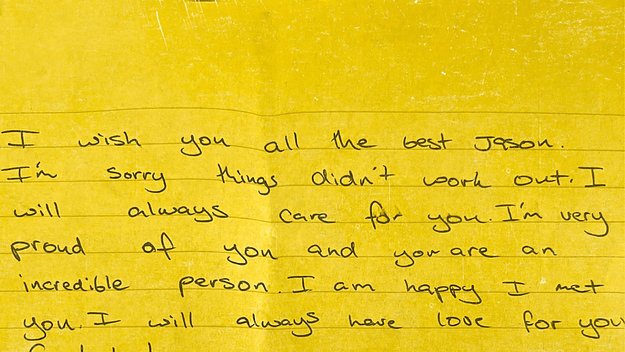 I wish you all the best Jason.
I'm sorry things didn't work out. I
will always care for you. I'm very
proud of you and you are an
incredible person. I am happy I met
you. I will always have love for you